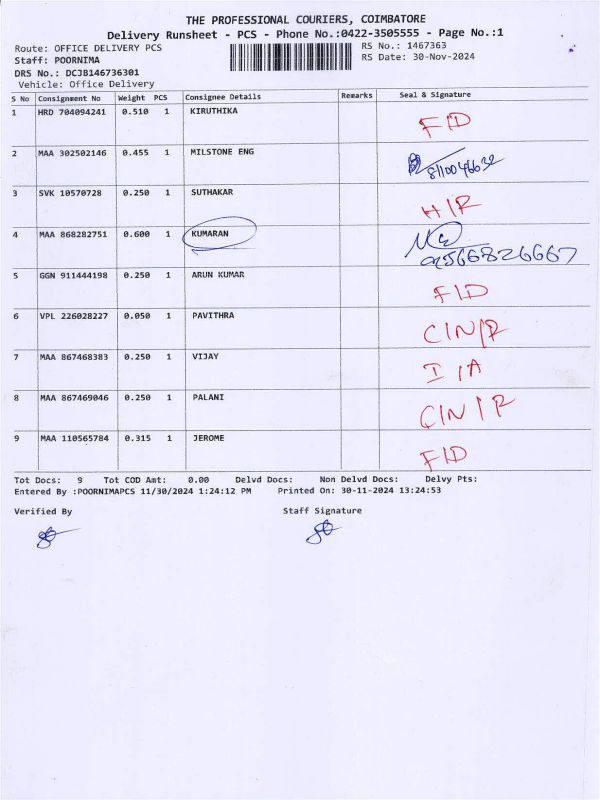 THE PROFESSIONAL COURIERS, COIMBATORE
Delivery Runsheet - PCS - Phone No.:0422-3505555 - Page No.:1
Route: OFFICE DELIVERY PCS RS No.: 1467363
Staff: POORNIMA RS Date: 30-Nov-2024
DRS No.: DCJB146736301
Vehicle: Office Delivery
S No Consignment No Weight PCS Consignee Details Remarks Seal & Signature
1 HRD 704094241 0.510 1 KIRUTHIKA F/D
2 MAA 302502146 0.455 1 MILSTONE ENG
3 SVK 10570728 0.250 1 SUTHAKAR H/R
4 MAA 868282751 0.600 1 KUMARAN
5 GGN 911444198 0.250 1 ARUN KUMAR F/D
6 VPL 226028227 0.050 1 PAVITHRA C/N/R
7 MAA 867468383 0.250 1 VIJAY I/A
8 MAA 867469046 0.250 1 PALANI C/N/R
9 MAA 110565784 0.315 1 JEROME F/D
Tot Docs: 9 Tot COD Amt: 0.00 Delvd Docs: Non Delvd Docs: Delvy Pts:
Entered By :POORNIMAPCS 11/30/2024 1:24:12 PM Printed On: 30-11-2024 13:24:53
Verified By Staff Signature